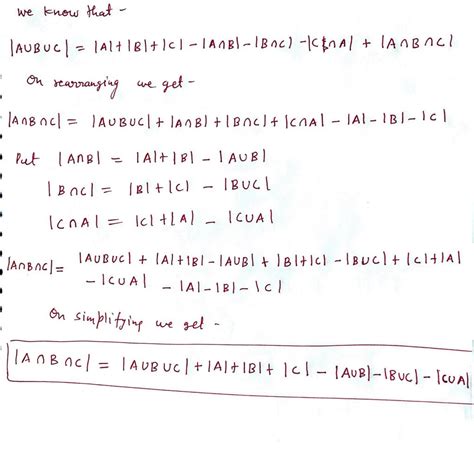 we know that -
|AUBUC| = |A|+|B|+|C| - |A∩B| - |B∩C| - |C∩A| + |A∩B∩C|
On rearranging we get -
|A∩B∩C| = |AUBUC| + |A∩B| + |B∩C| + |C∩A| - |A| - |B| - |C|
Put |A∩B| = |A|+|B| - |AUB|
|B∩C| = |B|+|C| - |BUC|
|C∩A| = |C|+|A| - |CUA|
|A∩B∩C| = |AUBUC| + |A|+|B| - |AUB| + |B|+|C| - |BUC| + |C|+|A|
- |CUA| - |A| - |B| - |C|
On simplifying we get -
|A∩B∩C| = |AUBUC| + |A|+|B|+ |C| - |AUB| - |BUC| - |CUA|